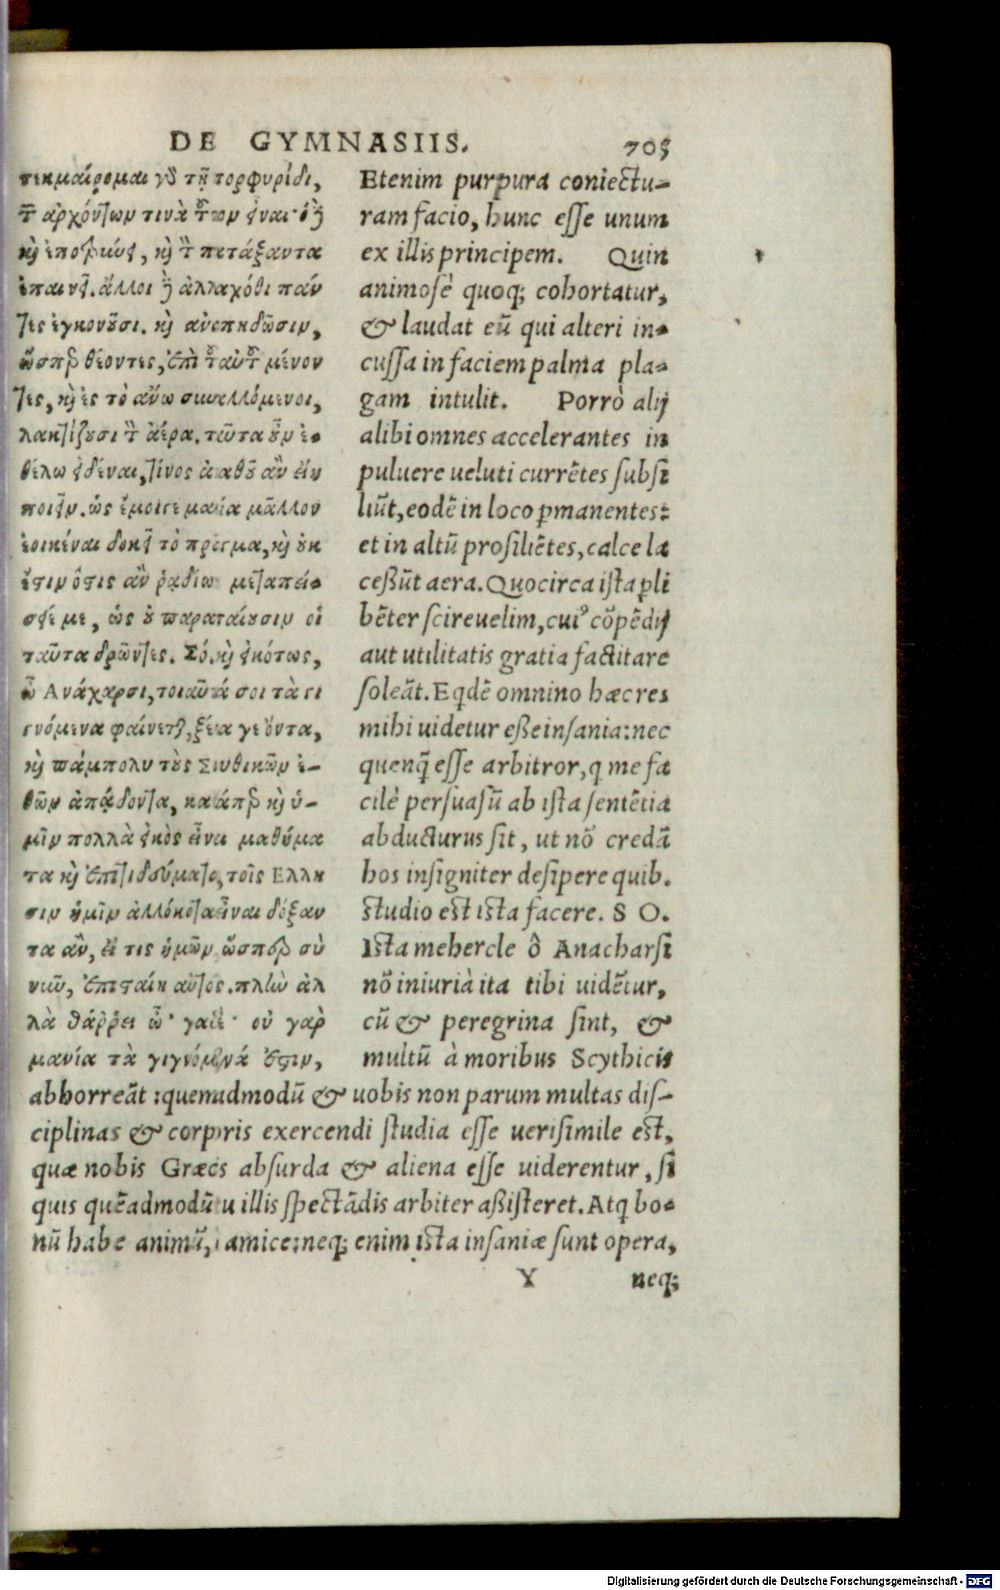 DE GYMNASIIS. 705
τεκμαίρομαι γὰρ τῇ πορφυρίδι,
τῶν ἀρχόντων τινὰ τοῦτον εἶναι· ὁ δὲ
καὶ ἐποτρύνει, καὶ τὸν πατάξαντα
ἐπαινεῖ. ἄλλοι δὲ ἀλλαχόθι πάν
τες ἐγκονοῦσι. καὶ ἀναπηδῶσιν,
ὥσπερ θέοντες, ἐπὶ τοῦ αὐτοῦ μένον
τες, καὶ ἐς τὸ ἄνω συναλλόμενοι,
λακτίζουσι τὸν ἀέρα. ταῦτα οὖν ἐ-
θέλω εἰδέναι, τίνος ἀγαθοῦ ἂν εἴη
ποιεῖν. ὡς ἔμοιγε μανία μᾶλλον
ἐοικέναι δοκεῖ τὸ πρᾶγμα, καὶ οὐκ
ἔστιν ὅστις ἂν ῥᾳδίως μεταπεί-
σειέ με, ὡς οὐ παραπαίουσιν οἱ
ταῦτα δρῶντες. Σό. καὶ εἰκότως,
ὦ Ανάχαρσι, τοιαῦτά σοι τὰ γι
γνόμενα φαίνεται, ξένα γε ὄντα,
καὶ πάμπολυ τοὺς Σκυθικῶν ἐ-
θῶν ἀπᾴδοντα, καθάπερ καὶ ὑ-
μῖν πολλὰ εἰκὸς εἶναι μαθήμα
τα καὶ ἐπιτηδεύματα, τοῖς Ελλη
σιν ἡμῖν ἀλλόκοτα εἶναι δόξαν
τα ἂν, εἴ τις ἡμῶν ὥσπερ σὺ
νῦν, ἐπισταίη αὐτοῖς. πλὴν ἀλ
λὰ θάῤῥει ὦ 'γαθέ· οὐ γὰρ
μανία τὰ γιγνόμενά ἐστιν,
Etenim purpura coniectu-
ram facio, hunc esse unum
ex illis principem. Quin
animosè quoq; cohortatur,
& laudat eũ qui alteri in-
cussa in faciem palma pla-
gam intulit. Porrò alij
alibi omnes accelerantes in
puluere ueluti currẽtes subsi
liũt, eodẽ in loco pmanentes:
et in altũ prosiliẽtes, calce la
ceßũt aera. Quocirca ista pli
bẽter scire uelim, cuiꝰ cõpẽdij
aut utilitatis gratia factitare
soleãt. Eqdẽ omnino hæc res
mihi uidetur eße insania: nec
quenq̃ esse arbitror, q me fa
cilè persuasũ ab ista sentẽtia
abducturus sit, ut nõ credã
hos insigniter desipere quib.
studio est ista facere. S O.
Ista mehercle ô Anacharsi
nõ iniurià ita tibi uidẽtur,
cũ & peregrina sint, &
multũ à moribus Scythicis
abhorreãt: quemadmodũ & uobis non parum multas dis-
ciplinas & corporis exercendi studia esse uerisimile est,
quæ nobis Græcis absurda & aliena esse uiderentur, si
quis quẽadmodũ tu illis spectãdis arbiter aßisteret. Atq bo-
nũ habe animũ, amice: neq; enim ista insaniæ sunt opera,
Y neq;
Digitalisierung gefördert durch die Deutsche Forschungsgemeinschaft - DFG